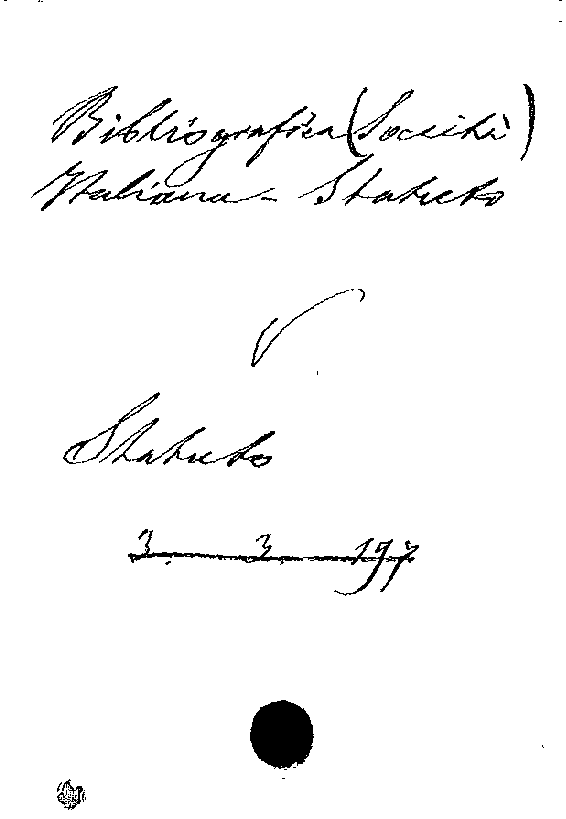 Bibliografica (Società)
Italiana - Statuto
V
Statuto
3. 3. 197